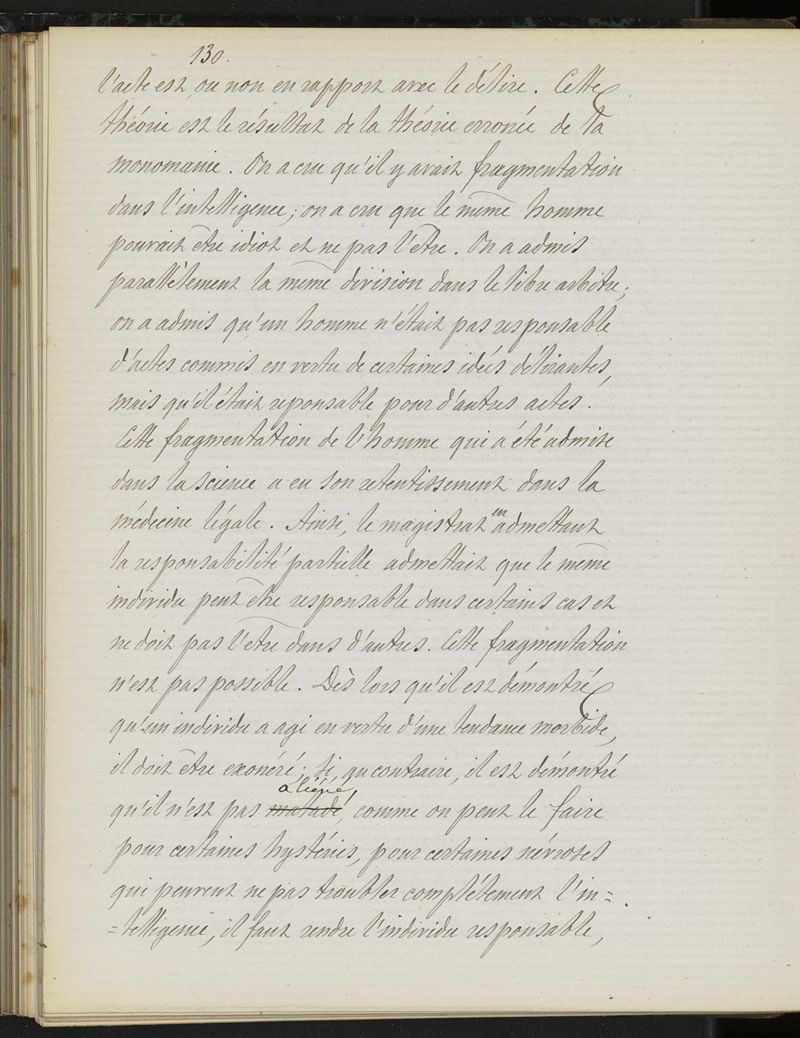 130.
l'acte est ou non en rapport avec le délire. Cette
théorie est le résultat de la théorie erronée de la
monomanie. On a cru qu'il y avait fragmentation
dans l'intelligence; on a cru que le même homme
pouvait être idiot et ne pas l'être. On a admis
parallèlement la même division dans le libre arbitre;
on a admis qu'un homme n'était pas responsable
d'actes commis en vertu de certaines idées délirantes,
mais qu'il était reponsable pour d'autres actes.
Cette fragmentation de l'homme qui a été admise
dans la science a eu son retentissement dans la
médecine légale. Ainsi, le magistrat en admettant
la responsabilité partielle admettait que le même
individu peut être responsable dans certains cas et
ne doit pas l'être dans d'autres. Cette fragmentation
n'est pas possible. Dès lors qu'il est démontré
qu'un individu a agi en vertu d'une tendance morbide,
il doit être exonéré; si, au contraire, il est démontré
aliéné,
qu'il n'est pas malade, comme on peut le faire
pour certaines hystéries, pour certaines névroses
qui peuvent ne pas troubler complétement l'in=
=telligence, il faut rendre l'individu responsable,